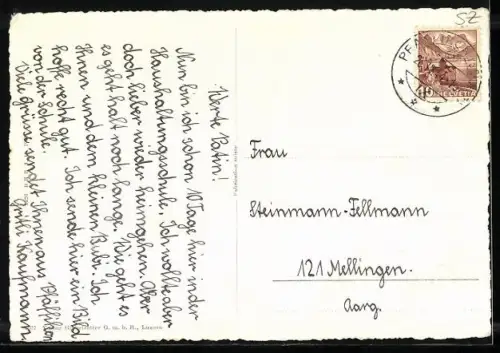 SZ
PFÄ
10
HELVETIA
Werte Patin!
Nun bin ich schon 10 Tage hier in der
Haushaltungsschule. Ich wollte aber
doch lieber wieder heimgehen. Aber
es geht halt noch lange. Wie geht es
Ihnen und dem kleinen Bubi. Ich
hoffe recht gut. Ich sende hier ein Bild
von der Schule.
Viele Grüsse sendet Ihnen aus Pfäffikon
Gritli Kaufmann.
Frau
Steinmann-Fellmann
121 Mellingen.
Aarg.
G. m. b. H., Luzern